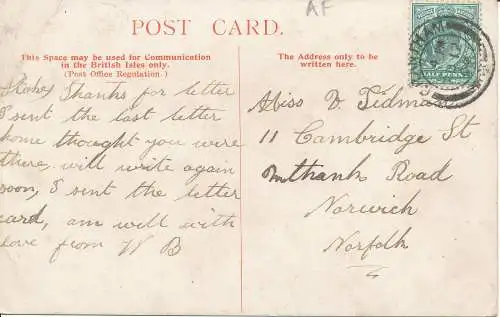 AF
POST CARD.
This Space may be used for Communication
in the British Isles only.
(Post Office Regulation.)
The Address only to be
written here.
HALF PENNY
Thanks for letter
I sent the last letter
home thought you were
there. will write again
soon, I sent the letter
card, am will with
love from W B
Miss V. Tidman
11 Cambridge St
Unthank Road
Norwich
Norfolk